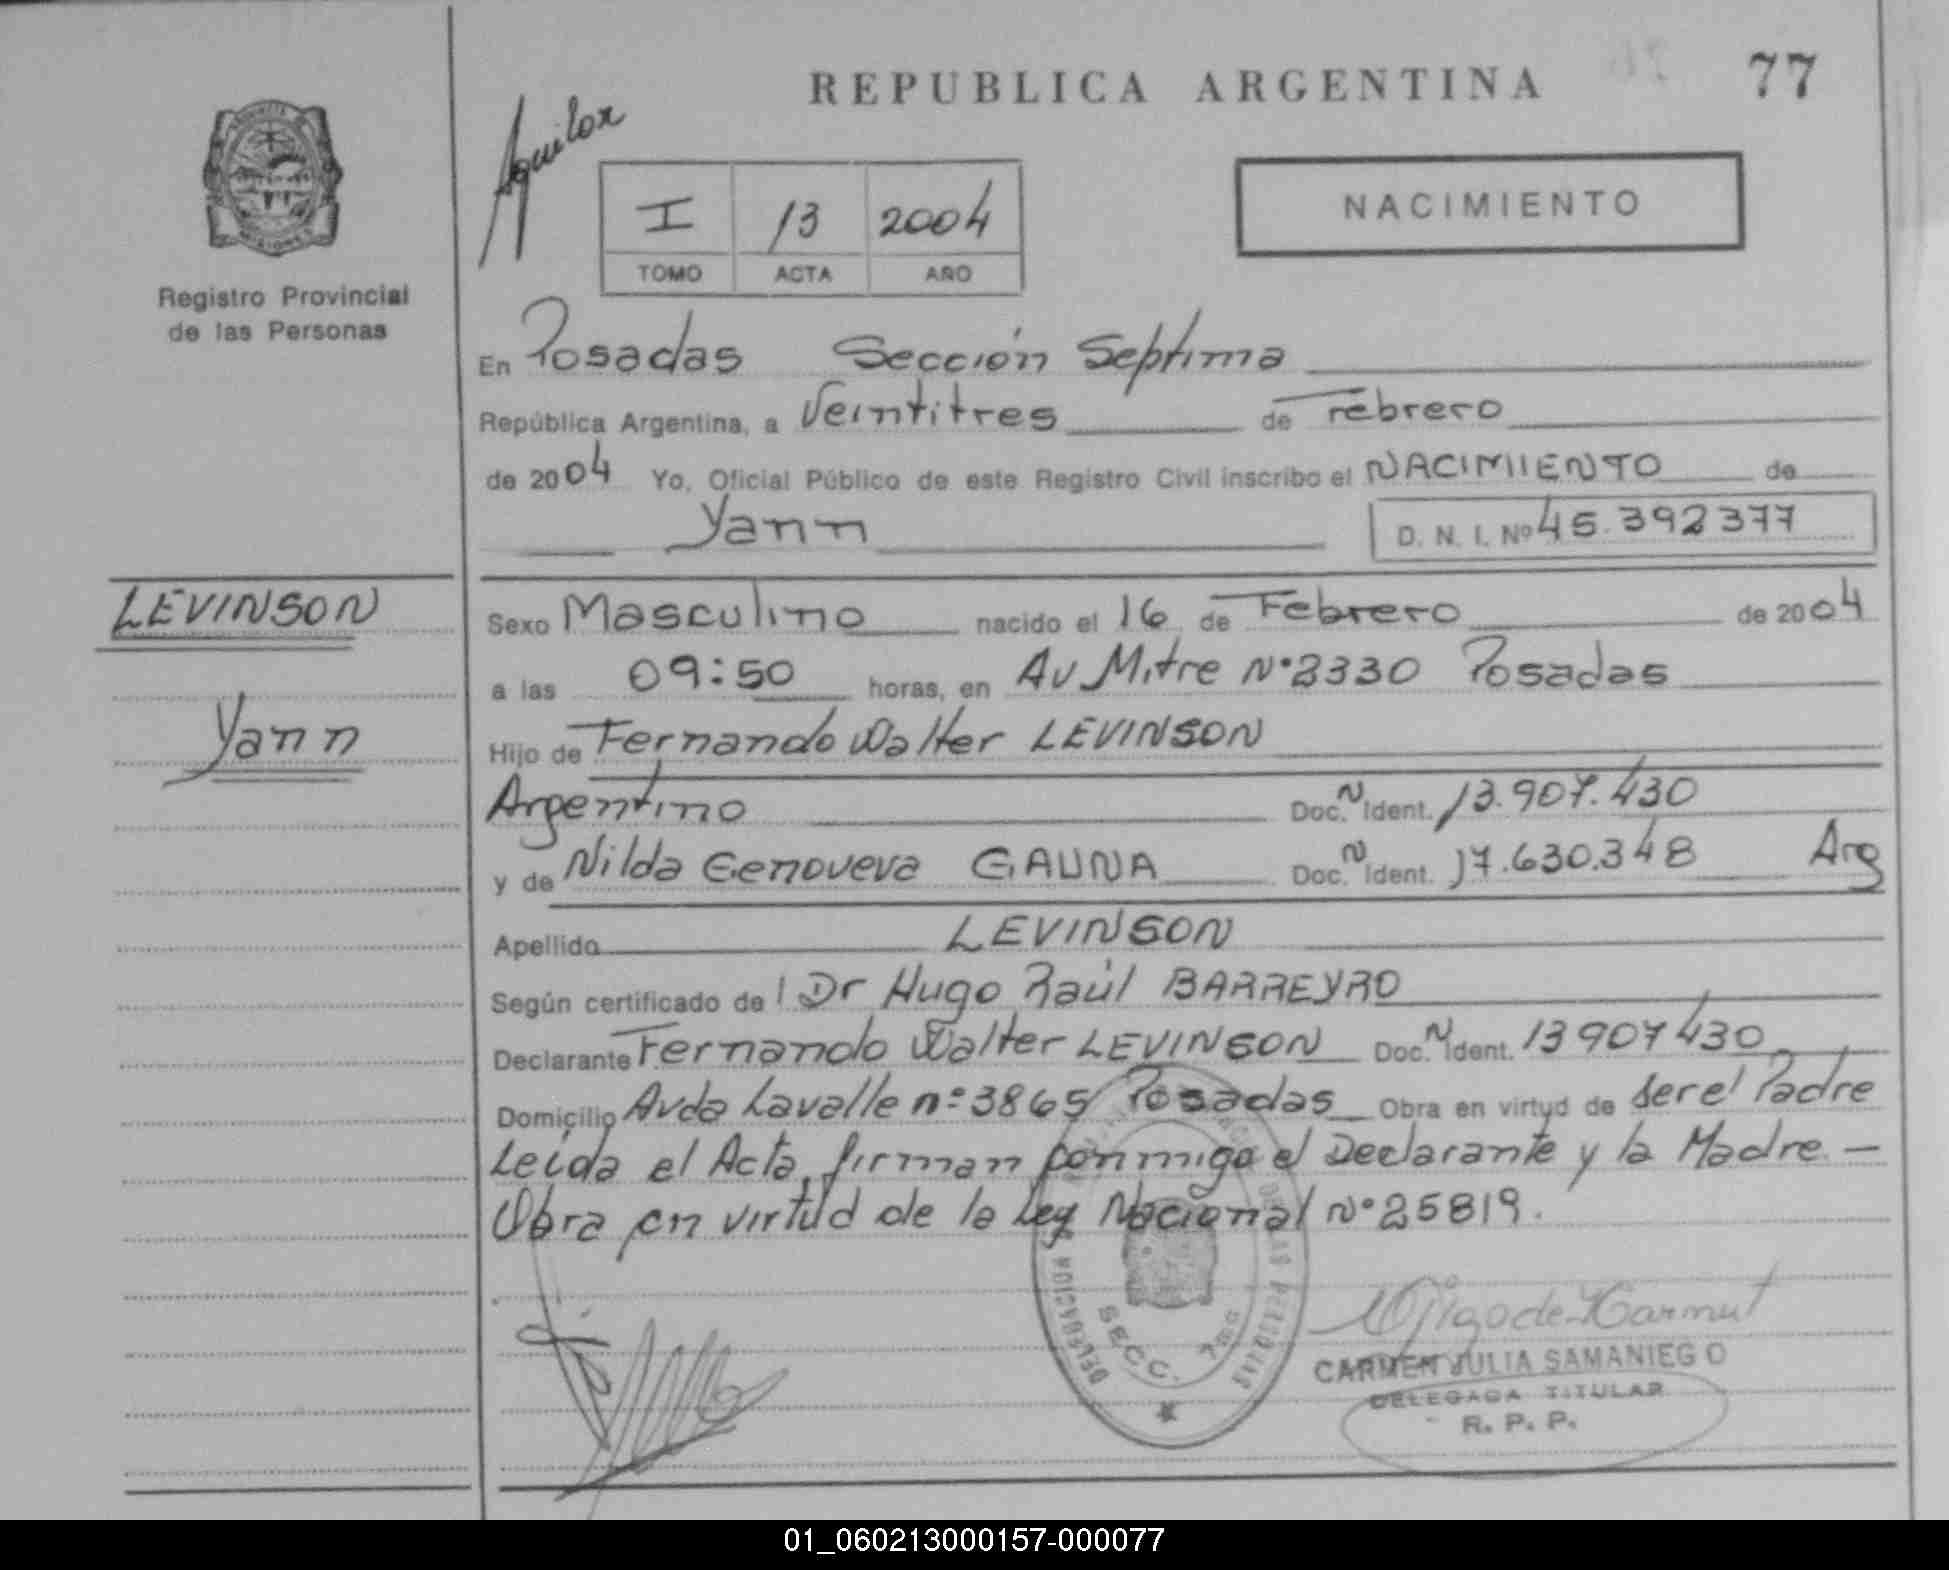 REPUBLICA ARGENTINA
77
Aguilar
I 13 2004
TOMO ACTA AÑO
NACIMIENTO
Registro Provincial
de las Personas
En Posadas Sección Septima
República Argentina, a Veintitres de Febrero
de 2004 Yo, Oficial Público de este Registro Civil inscribo el NACIMIIENTO de
Yann
D. N. I. Nº 45.392377
LEVINSON
Yann
Sexo Masculino nacido el 16 de Febrero de 2004
a las 09:50 horas, en Av Mitre Nº 2330 Posadas
Hijo de Fernando Walter LEVINSON
Argentino Doc. N Ident. 13.907.430
y de Nilda Genoveva GAUNA Doc. N Ident. 17.630.348 Arg
Apellido LEVINSON
Según certificado de l Dr Hugo Raúl BARREYRO
Declarante Fernando Walter LEVINSON Doc. N Ident. 13907430
Domicilio Avda Lavalle nº 3865 Posadas Obra en virtud de ser el Padre
Leida el Acta, firman conmigo el Declarante y la Madre. —
Obra en virtud de la Ley Nacional Nº 25819.
DELEGACION
DE LAS PERSONAS
SECC. 7ma
CARMEN JULIA SAMANIEGO
DELEGADA TITULAR
R. P. P.
01_060213000157-000077